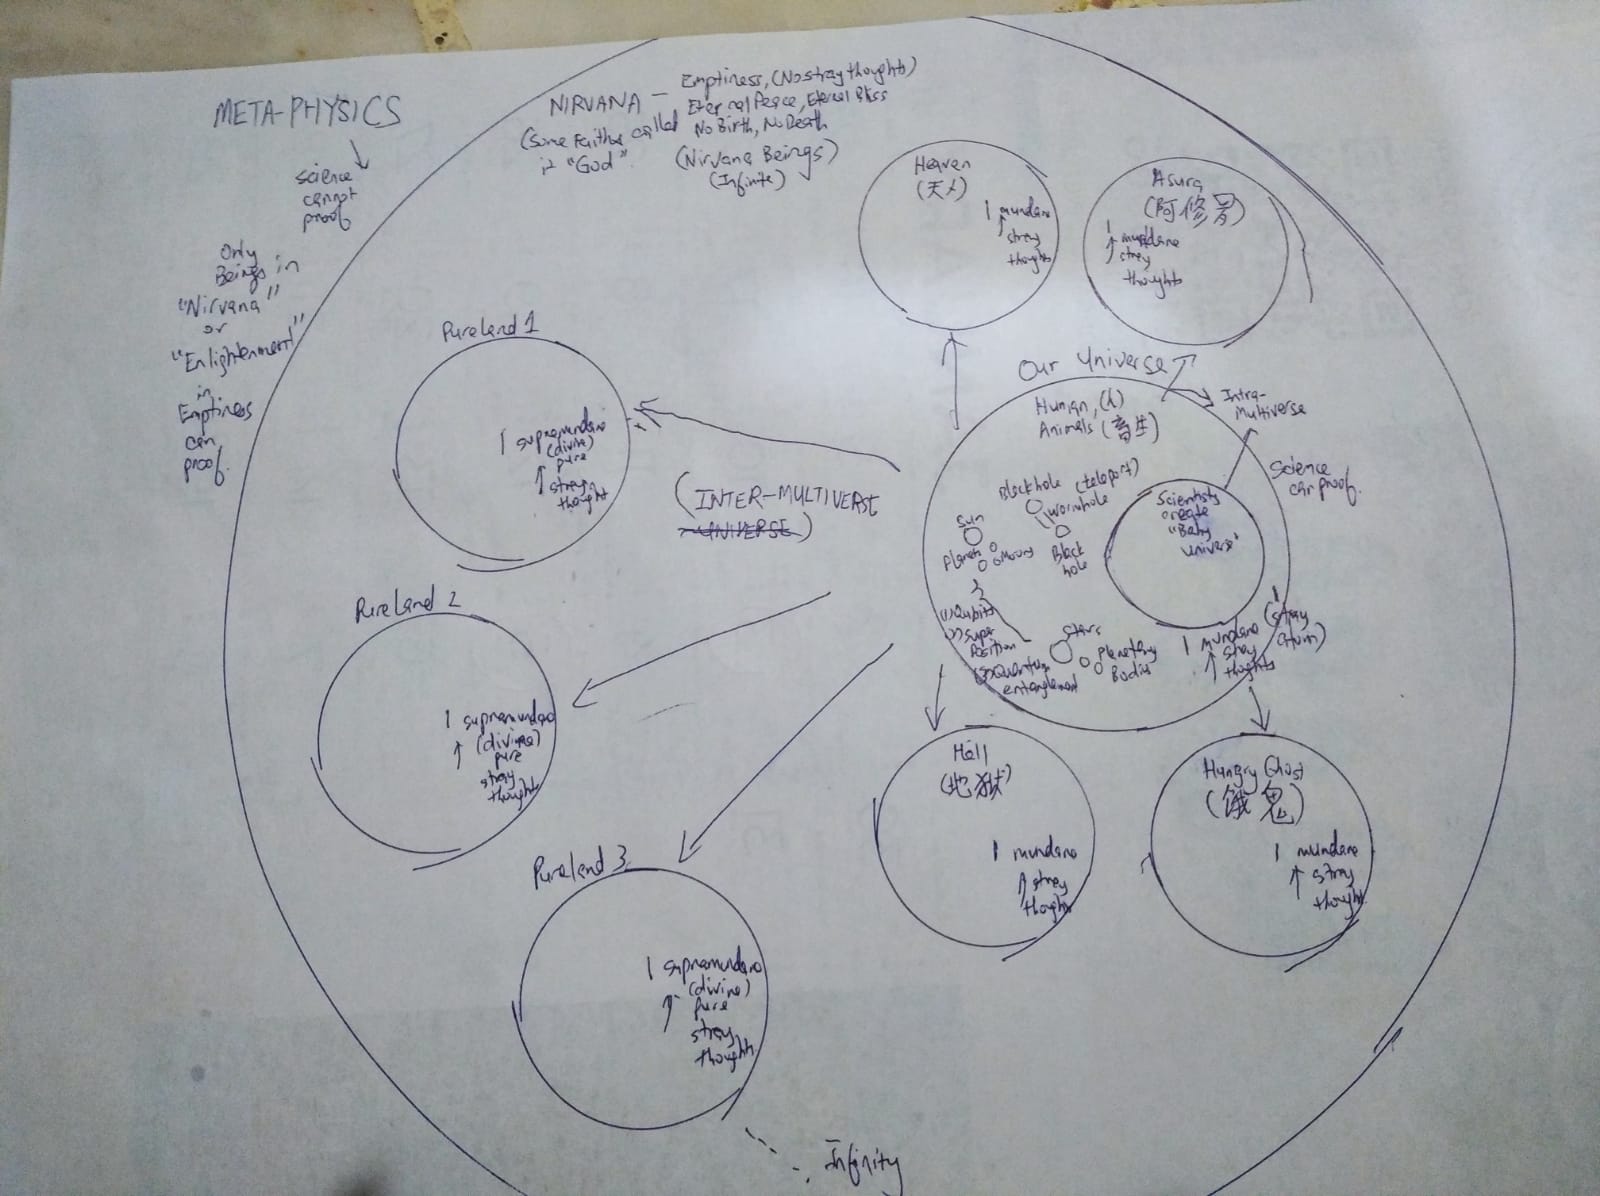 META-PHYSICS
science
cannot
proof
Only
Beings in
"Nirvana"
or
"Enlightenment"
in
Emptiness
can
proof.
NIRVANA — Emptiness, (No stray thoughts)
Eternal Peace, Eternal Bliss
(Some Faiths called No Birth, No Death
it "God". (Nirvana Beings)
(Infinite)
Heaven
(天人)
1 mundane
stray
thoughts
Asura
(阿修罗)
1 mundane
stray
thoughts
Pureland 1
1 supramundane
(divine)
pure
stray
thought
(INTER-MULTIVERSE
UNIVERSE)
Pureland 2
1 supramundane
(divine)
pure
stray
thoughts
Pureland 3
1 supramundane
(divine)
pure
stray
thoughts
Infinity
Our Universe
Intra-
Multiverse
Science
can proof.
Human, (人)
Animals (畜生)
Blackhole (teleport)
Wormhole
Black
hole
Sun
Planets
Scientists
create
"Baby
Universe"
1) Qubits
2) Super
Position
3) Quantum
entanglement
Stars
Planetary
Bodies
1 mundane (stray
stray
thoughts
Hell
(地狱)
1 mundane
stray
thoughts
Hungry Ghost
(饿鬼)
1 mundane
stray
thought